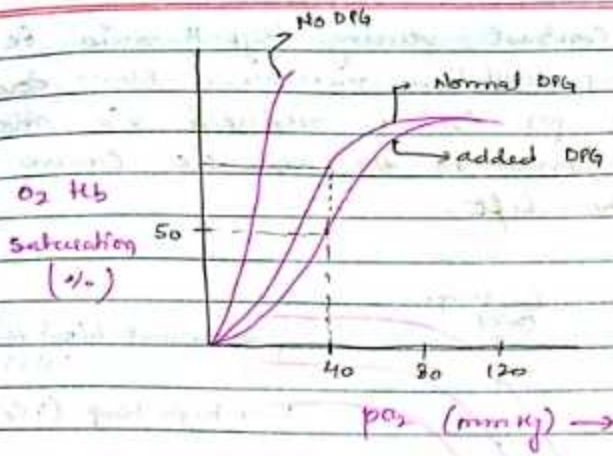 No DPG
Normal DPG
added DPG
O2 Hb
Saturation
(%)
50
40
80
120
pO2 (mmHg) →